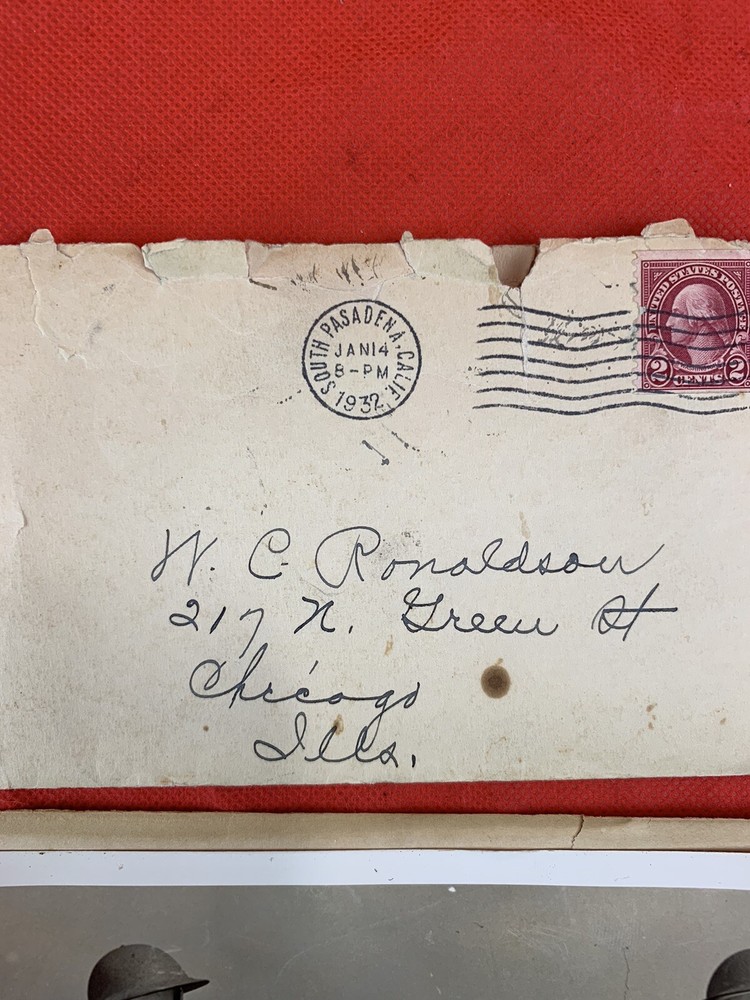 SOUTH PASADENA, CALIF.
JAN 14
8-PM
1932
UNITED STATES POSTAGE
2 CENTS 2
W. C. Ronaldson
217 N. Green St
Chicago
Ills.